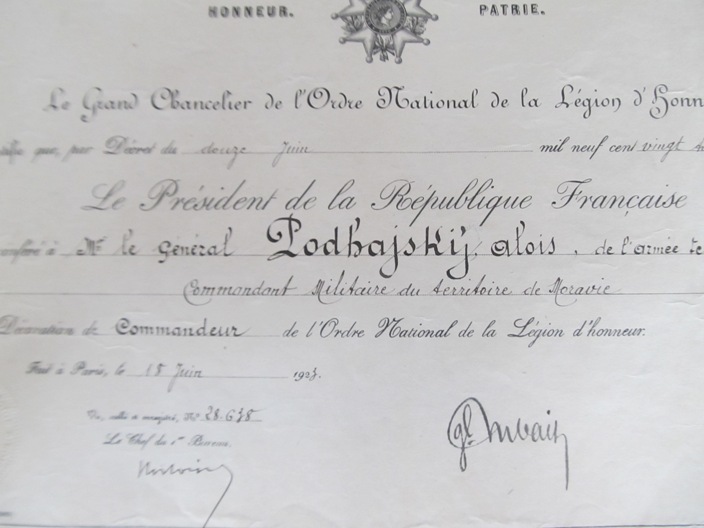 HONNEUR. PATRIE.
Le Grand Chancelier de l'Ordre National de la Légion d'Honn
que, par Décret du deuze Juin mil neuf cent vingt
Le Président de la République Française
conféré à Mr le Général Podhajskÿ, alois, de l'armée
Commandant Militaire du territoire de Moravie
Décoration de Commandeur de l'Ordre National de la Légion d'honneur.
Fait à Paris, le 15 Juin 1923.
Vu, scellé et enregistré, No 28.678
Le Chef du 1er Bureau.